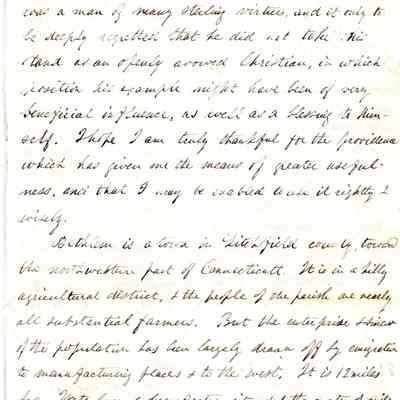 was a man of many sterling virtues, and it only to
be deeply regretted that he did not take his
stand as an openly avowed Christian, in which
position his example might have been of very
beneficial influence, as well as a blessing to him-
self. I hope I am truly thankful for the providence
which has given me the means of greater useful-
ness, and that I may be enabled to use it rightly &
wisely.
Bethlem is a town in Litchfield county, toward
the northwestern part of Connecticutt. It is in a hilly
agricultural district, & the people of the parish are nearly
all substantial farmers. But the enterprise & sinew
of the population has been largely drawn off by emigration
to manufacturing places & to the west. It is 12 miles